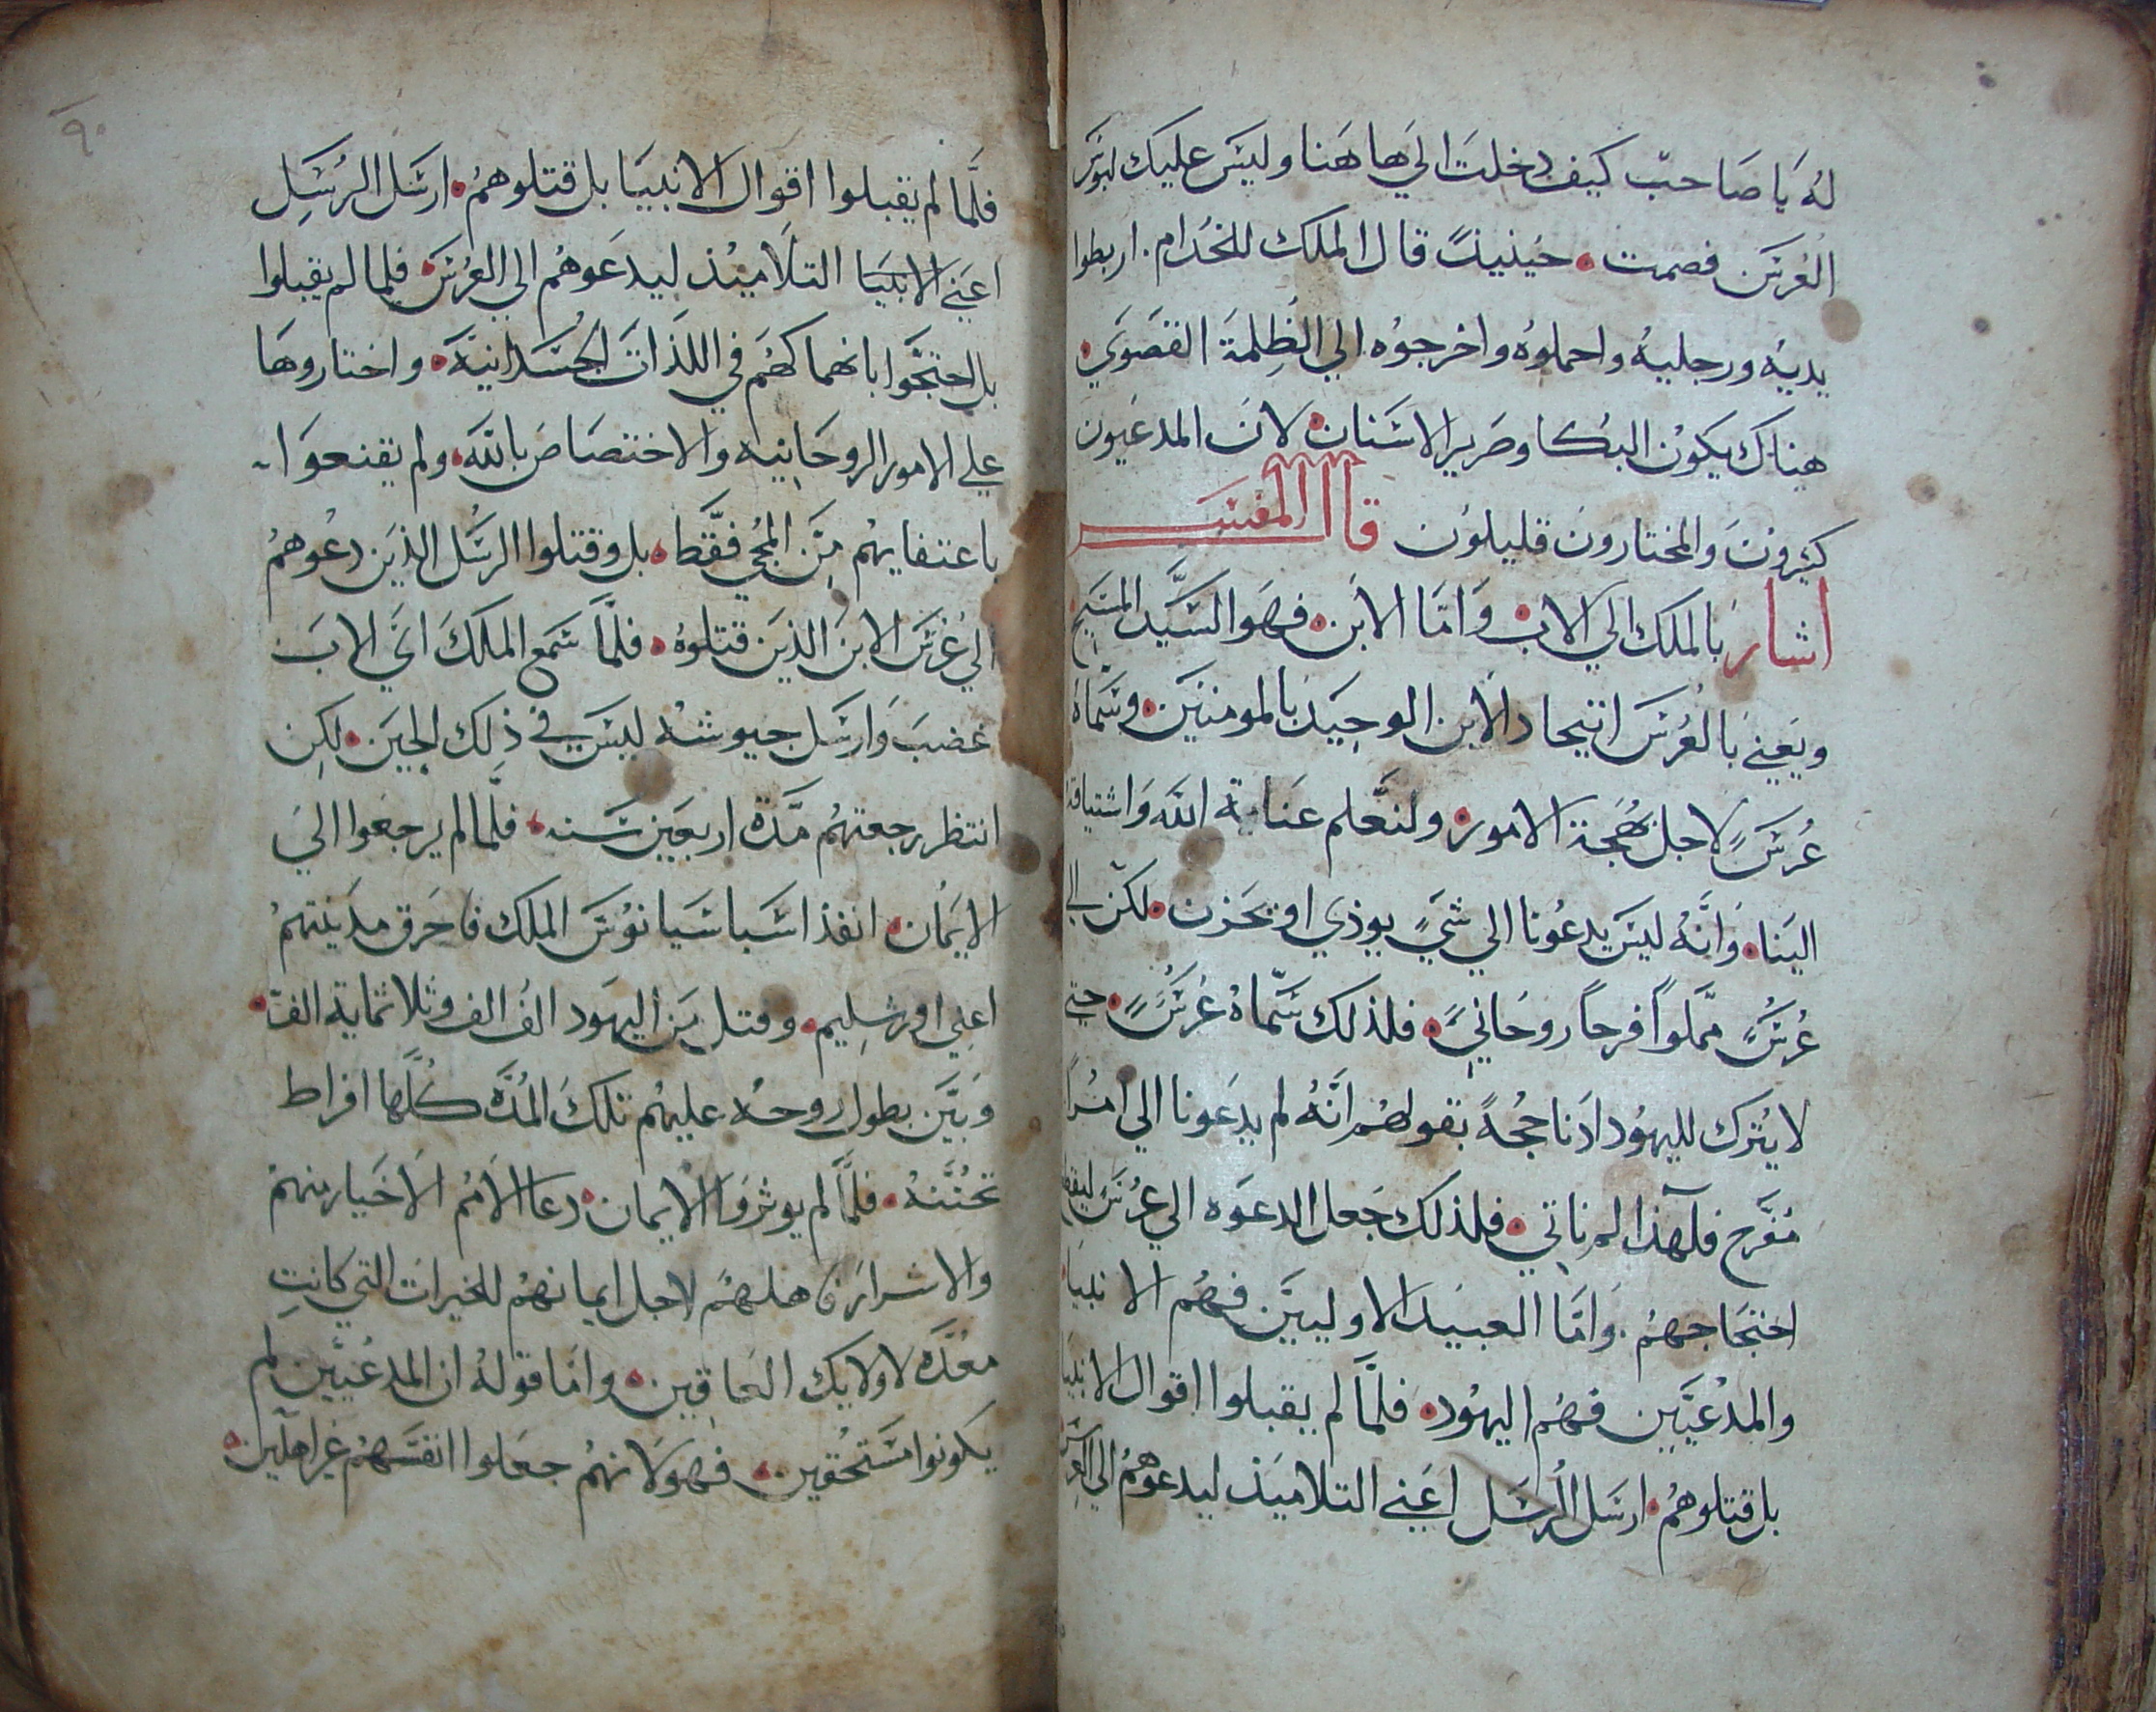 له يا صاحب كيف دخلت الي هاهنا وليس عليك لبوس
العرس فصمت • حينيذ قال الملك للخدام . اربطوا
يديه ورجليه واحملوه واخرجوه الي الظلمة القصوي •
هناك يكون البكا وصرير الاسنان • لان المدعيون
كثيرون والمختارون قليلون قال المفسر
اشار بالملك الي الاب • واما الابن • فهو السيد المسيح
ويعني بالعرس اتحاد الابن الوحيد بالمومنين • وسماه
عرس لاجل بهجة الامور • ولنعلم عناية الله واشتياقه
الينا • وانه ليس يدعونا الي شي يوذي او يحزن • لكن الي
عرس مملوا فرحا روحاني • فلذلك سماه عرس • حتي
لا يترك لليهود ادنا حجة بقولهم انه لم يدعونا الي امرا
مفرح فلهذا لم ناتي • فلذلك جعل الدعوه الي عرس ليقطع
احتجاجهم . واما العبيد الاوليين فهم الانبيا •
والمدعيين فهم اليهود • فلما لم يقبلوا اقوال الانبيا
بل قتلوهم • ارسل الرسل اعني التلاميذ ليدعوهم الي العرس
٩٠
فلما لم يقبلوا اقوال الانبيا بل قتلوهم • ارسل الرسل
اعني الانبيا التلاميذ ليدعوهم الي العرس • فلما لم يقبلوا
بل احتجوا بانهماكهم في اللذات الجسدانية • واختاروها
علي الامور الروحانيه والاختصاص بالله • ولم يقنعوا
باعتفايهم من المجي فقط • بل وقتلوا الرسل الذين دعوهم
الي عرس الابن الذين قتلوه • فلما سمع الملك اي الاب
غضب وارسل جيوشه ليس في ذلك الحين • لكن
انتظر رجعتهم مدة اربعين سنه • فلما لم يرجعوا الي
الايمان • انفذ اسباسيانوس الملك فاحرق مدينتهم
اعني اورشليم • وقتل من اليهود الف الف وثلاثماية الف •
وبين بطول روحه عليهم تلك المده كلها افراط
تحننه • فلما لم يوثروا الايمان • دعا الامم الاخيار منهم
والاشرار فاهلهم لاجل ايمانهم للخيرات التي كانت
معده لاولايك العاقين • واما قوله ان المدعيين لم
يكونوا مستحقين • فهو لانهم جعلوا انفسهم غير اهلين •